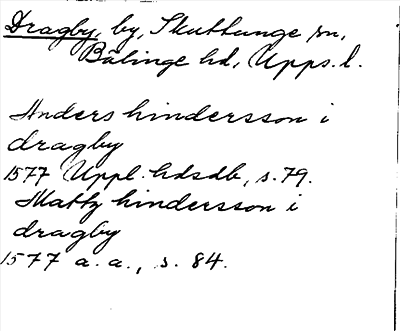 Dragby, by, Skuttunge sn,
Bälinge hd, Upps. l.
Anders hindersson i
dragby
1577 Uppl. hdsdb, s. 79.
Matz hindersson i
dragby
1577 a. a., s. 84.